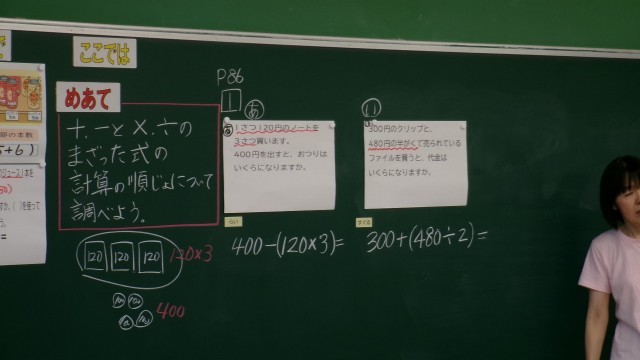 ここでは
めあて
+,−と×,÷の
まざった式の
計算の順じょについて
調べよう。
120 120 120
120×3
400
P86
1
あ
1さつ120円のノートを
3さつ買います。
400円を出すと、おつりは
いくらになりますか。
400−(120×3)=
い
300円のクリップと、
480円の半がくで売られている
ファイルを買うと、代金は
いくらになりますか。
300+(480÷2)=